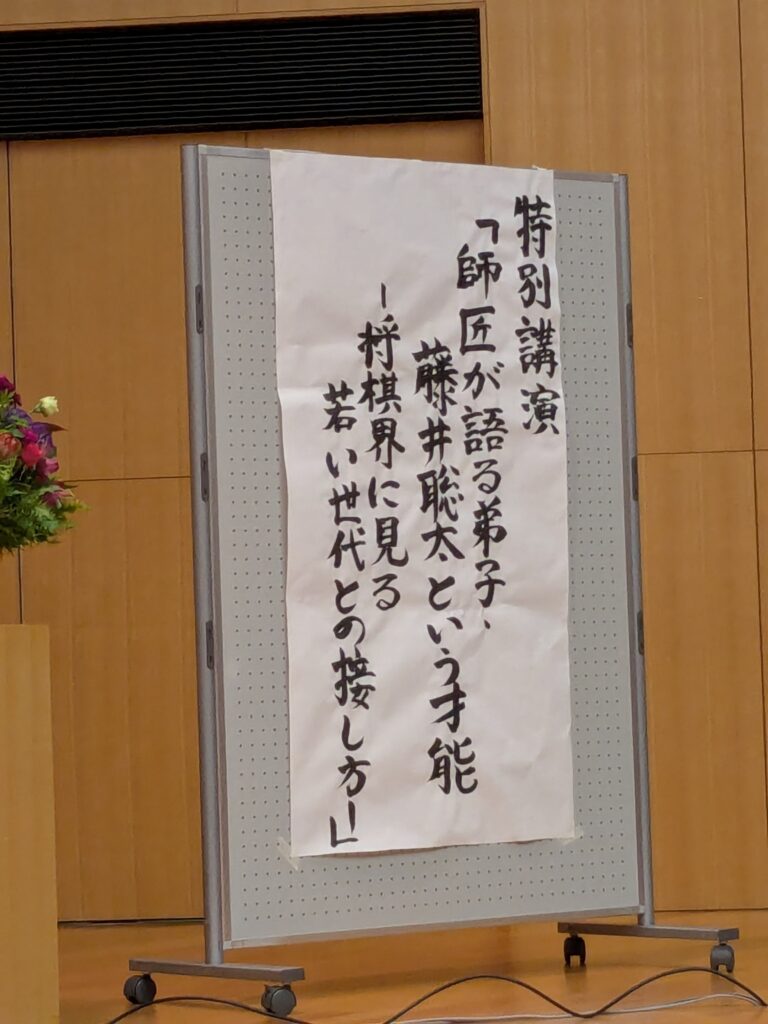 特別講演
「師匠が語る弟子、
藤井聡太という才能
ー将棋界に見る
若い世代との接し方ー」